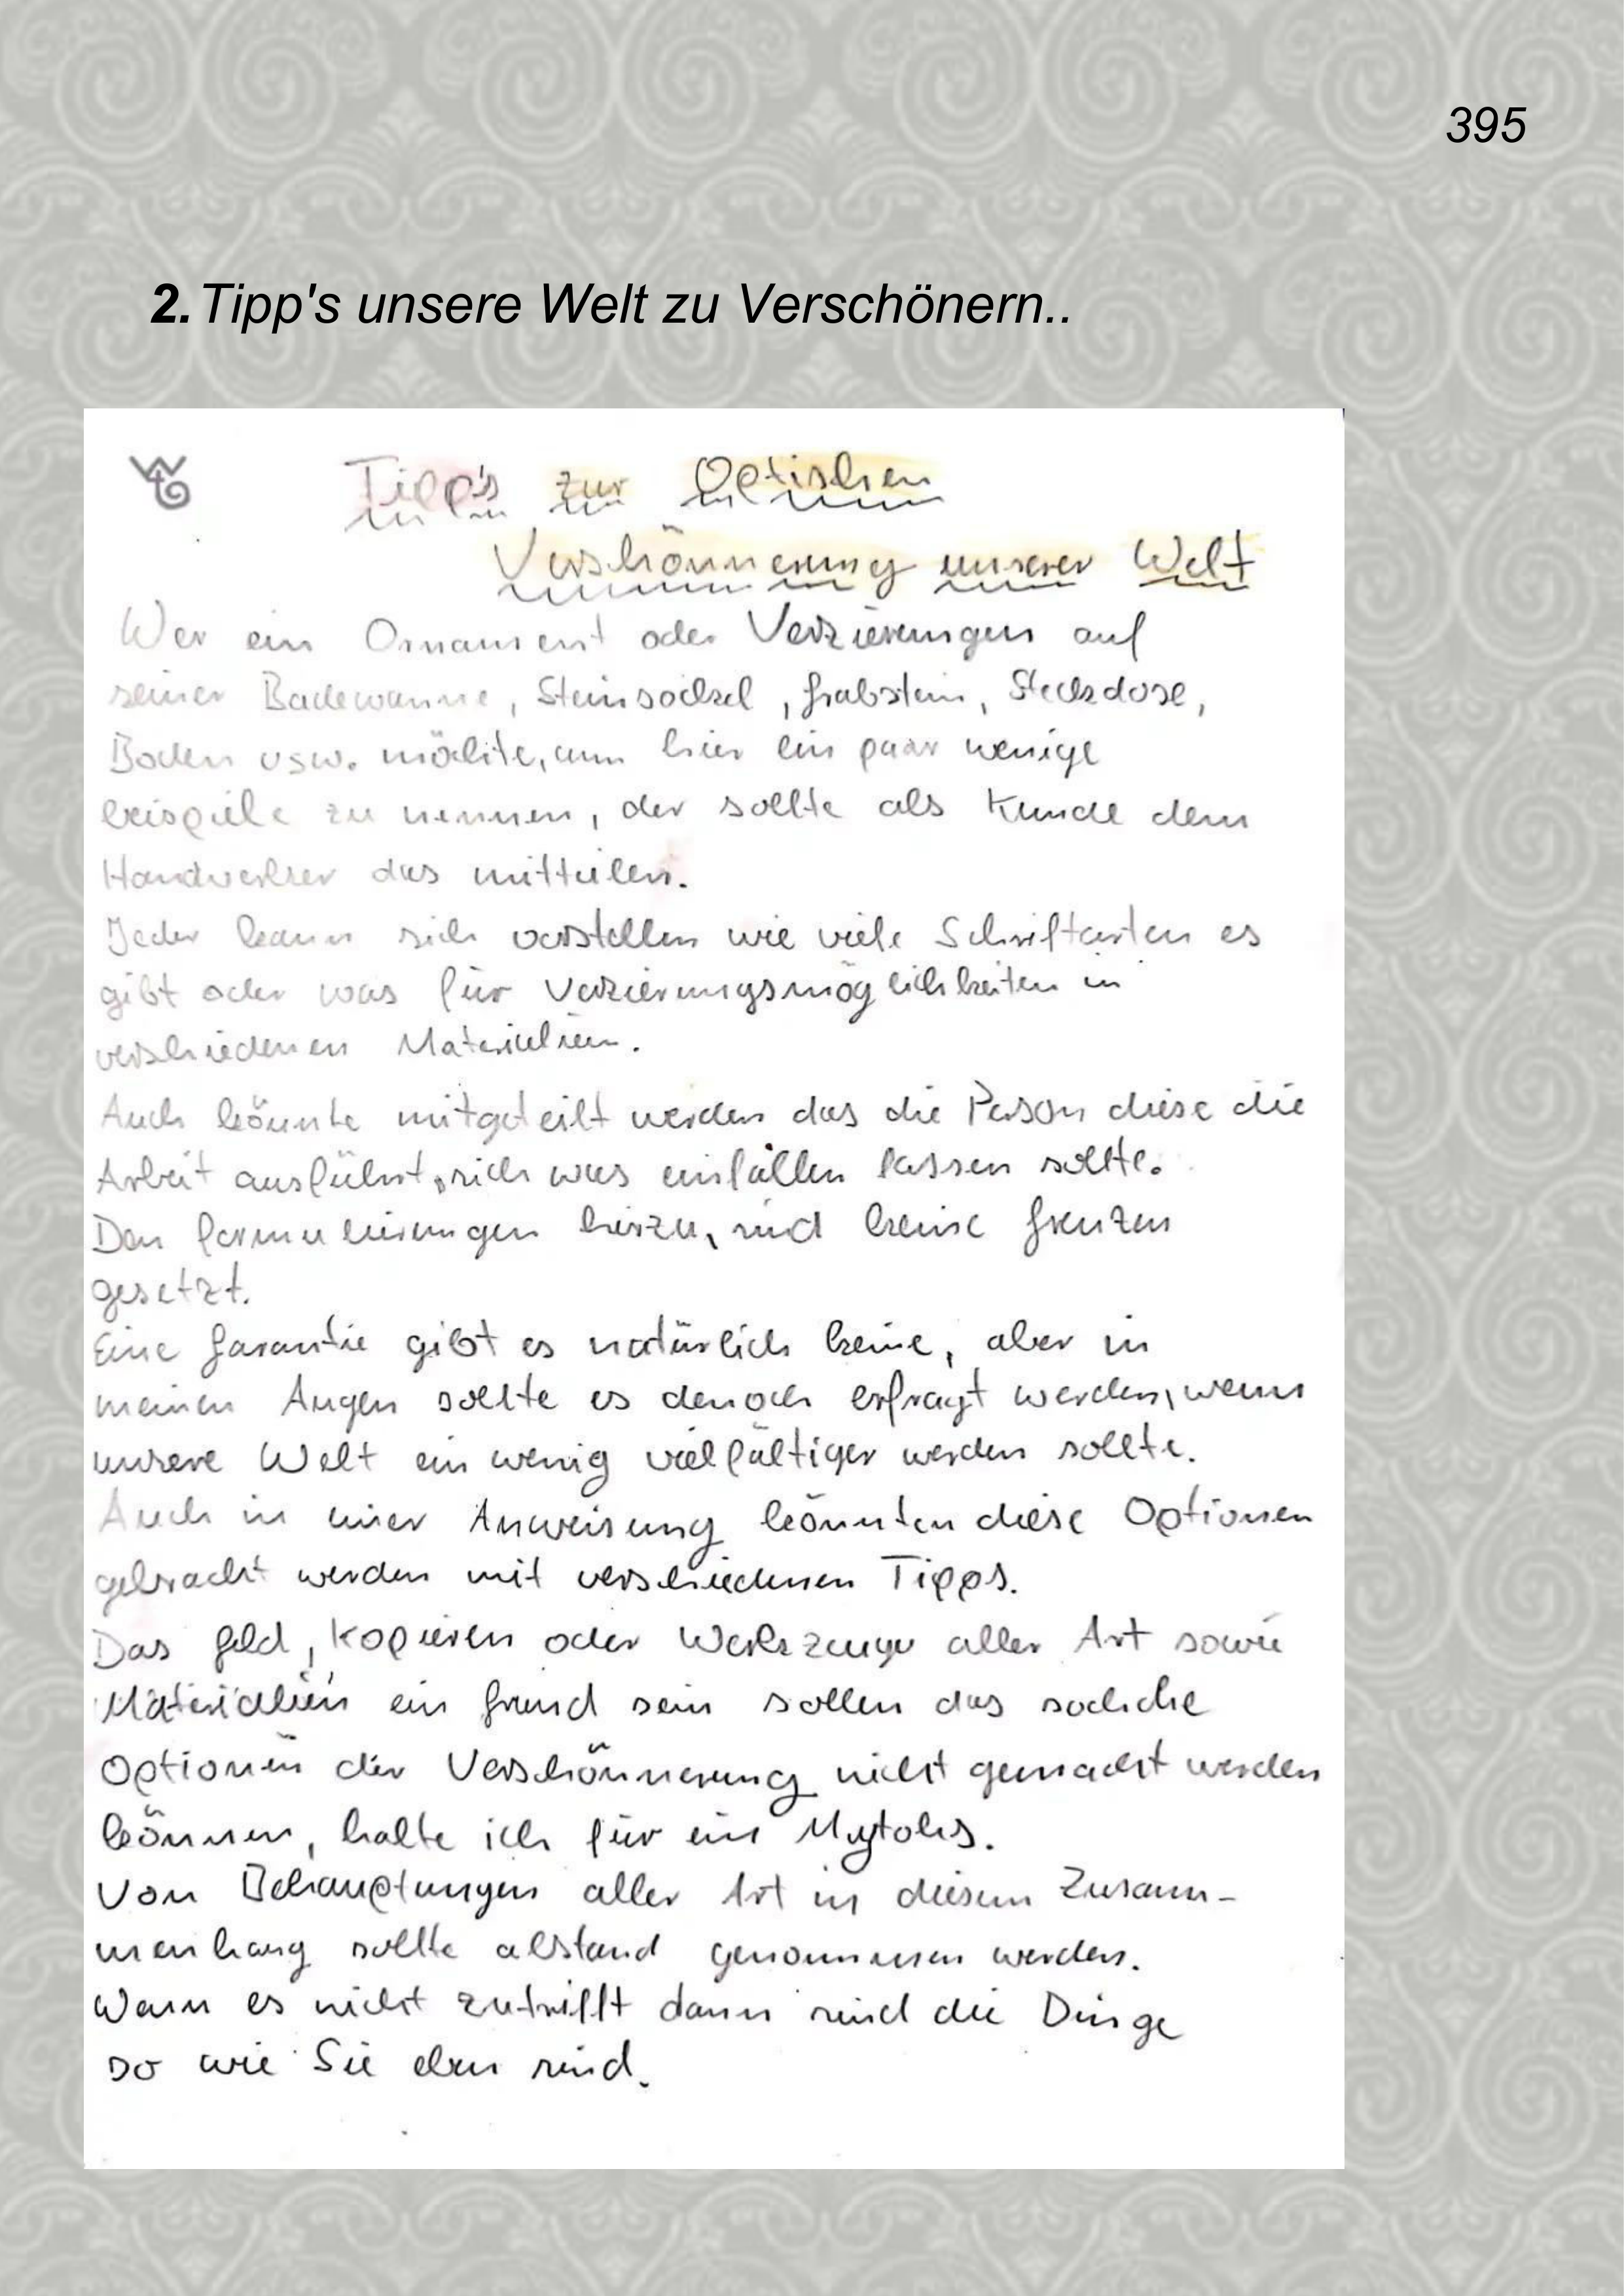 395
2. Tipp's unsere Welt zu Verschönern..
Tipp's zur Optischen
Verschönnerung unserer Welt
Wer ein Ornament oder Verzierungen auf
seiner Badewanne, Steinsockel, Grabstein, Steckdose,
Boden usw. möchte, um hier ein paar wenige
beispiele zu nennen, der sollte als Kunde dem
Handwerker das mitteilen.
Jeder kann sich vorstellen wie viele Schriftarten es
gibt oder was für Verzierungsmöglichkeiten in
verschiedenen Materialien.
Auch könnte mitgeteilt werden das die Person diese die
Arbeit ausführt, sich was einfallen lassen sollte.
Den formulierungen hierzu, sind keine Grenzen
gesetzt.
Eine Garantie gibt es natürlich keine, aber in
meinen Augen sollte es denoch erfragt werden, wenn
unsere Welt ein wenig vielfältiger werden sollte.
Auch in einer Anweisung könnten diese Optionen
gebracht werden mit verschiedenen Tipps.
Das Geld, Kopieren oder Werkzeuge aller Art sowie
Materialien ein Grund sein sollen das solche
Optionen der Verschönnerung nicht gemacht werden
können, halte ich für ein Mytohs.
Von Behauptungen aller Art in diesem Zusam-
menhang sollte abstand genommen werden.
Wann es nicht zutrifft dann sind die Dinge
so wie Sie eben sind.